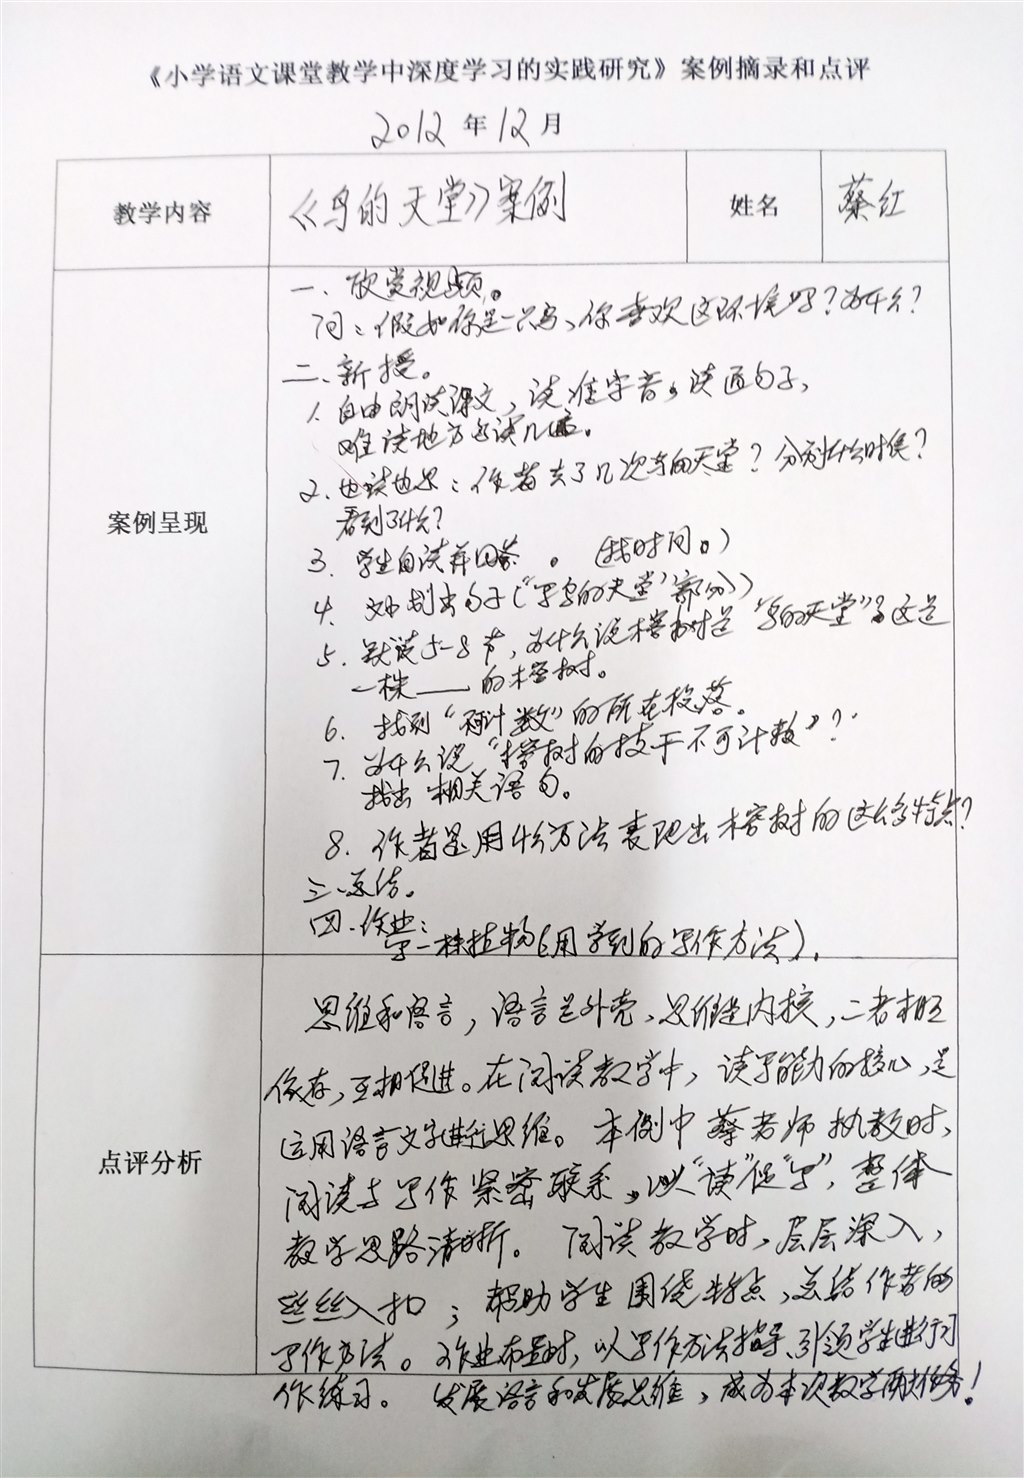 《小学语文课堂教学中深度学习的实践研究》案例摘录和点评
2012 年 12 月
教学内容
《鸟的天堂》案例
姓名
蔡红
案例呈现
一、欣赏视频。
问：假如你是一只鸟、你喜欢这环境吗？为什么？
二、新授。
1. 自由朗读课文，读准字音。读通句子，
难读地方多读几遍。
2. 边读边思：作者去了几次鸟的天堂？分别什么时候？
看到了什么？
3. 学生自读并回答。（找时间。）
4. 划出句子（“写鸟的天堂”部分）
5. 默读5-8节，为什么说榕树是“鸟的天堂”？这是
一株____的榕树。
6. 找到“不可计数”的所在段落。
7. 为什么说“榕树的枝干不可计数”？
找出相关语句。
8. 作者是用什么方法表现出榕树的这么多特点？
三、总结。
四、作业：
写一株植物（用学到的写作方法）.
点评分析
思维和语言，语言是外壳、思维是内核，二者相互
依存，互相促进。在阅读教学中，读写能力的核心，是
运用语言文字进行思维。本例中蔡老师执教时，
阅读与写作紧密联系。以“读”促“写”，整体
教学思路清晰。阅读教学时、层层深入，
丝丝入扣；帮助学生围绕特点、总结作者的
写作方法。作业布置时，以写作方法指导、引领学生进行习
作练习。发展语言和发展思维，成为本次教学的任务！